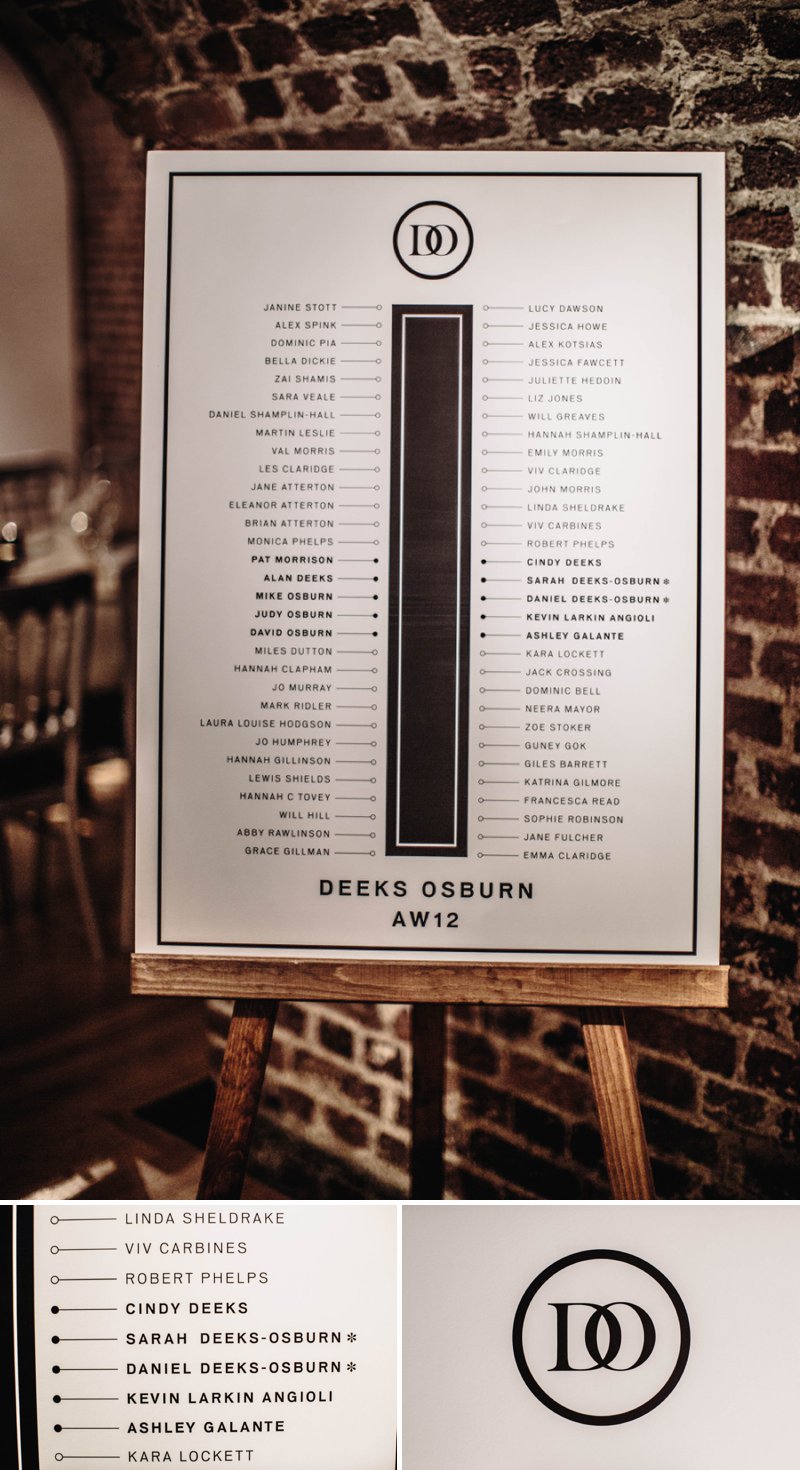 DO
JANINE STOTT
ALEX SPINK
DOMINIC PIA
BELLA DICKIE
ZAI SHAMIS
SARA VEALE
DANIEL SHAMPLIN-HALL
MARTIN LESLIE
VAL MORRIS
LES CLARIDGE
JANE ATTERTON
ELEANOR ATTERTON
BRIAN ATTERTON
MONICA PHELPS
PAT MORRISON
ALAN DEEKS
MIKE OSBURN
JUDY OSBURN
DAVID OSBURN
MILES DUTTON
HANNAH CLAPHAM
JO MURRAY
MARK RIDLER
LAURA LOUISE HODGSON
JO HUMPHREY
HANNAH GILLINSON
LEWIS SHIELDS
HANNAH C TOVEY
WILL HILL
ABBY RAWLINSON
GRACE GILLMAN
LUCY DAWSON
JESSICA HOWE
ALEX KOTSIAS
JESSICA FAWCETT
JULIETTE HEDOIN
LIZ JONES
WILL GREAVES
HANNAH SHAMPLIN-HALL
EMILY MORRIS
VIV CLARIDGE
JOHN MORRIS
LINDA SHELDRAKE
VIV CARBINES
ROBERT PHELPS
CINDY DEEKS
SARAH DEEKS-OSBURN*
DANIEL DEEKS-OSBURN*
KEVIN LARKIN ANGIOLI
ASHLEY GALANTE
KARA LOCKETT
JACK CROSSING
DOMINIC BELL
NEERA MAYOR
ZOE STOKER
GUNEY GOK
GILES BARRETT
KATRINA GILMORE
FRANCESCA READ
SOPHIE ROBINSON
JANE FULCHER
EMMA CLARIDGE
DEEKS OSBURN
AW12
LINDA SHELDRAKE
VIV CARBINES
ROBERT PHELPS
CINDY DEEKS
SARAH DEEKS-OSBURN*
DANIEL DEEKS-OSBURN*
KEVIN LARKIN ANGIOLI
ASHLEY GALANTE
KARA LOCKETT
DO